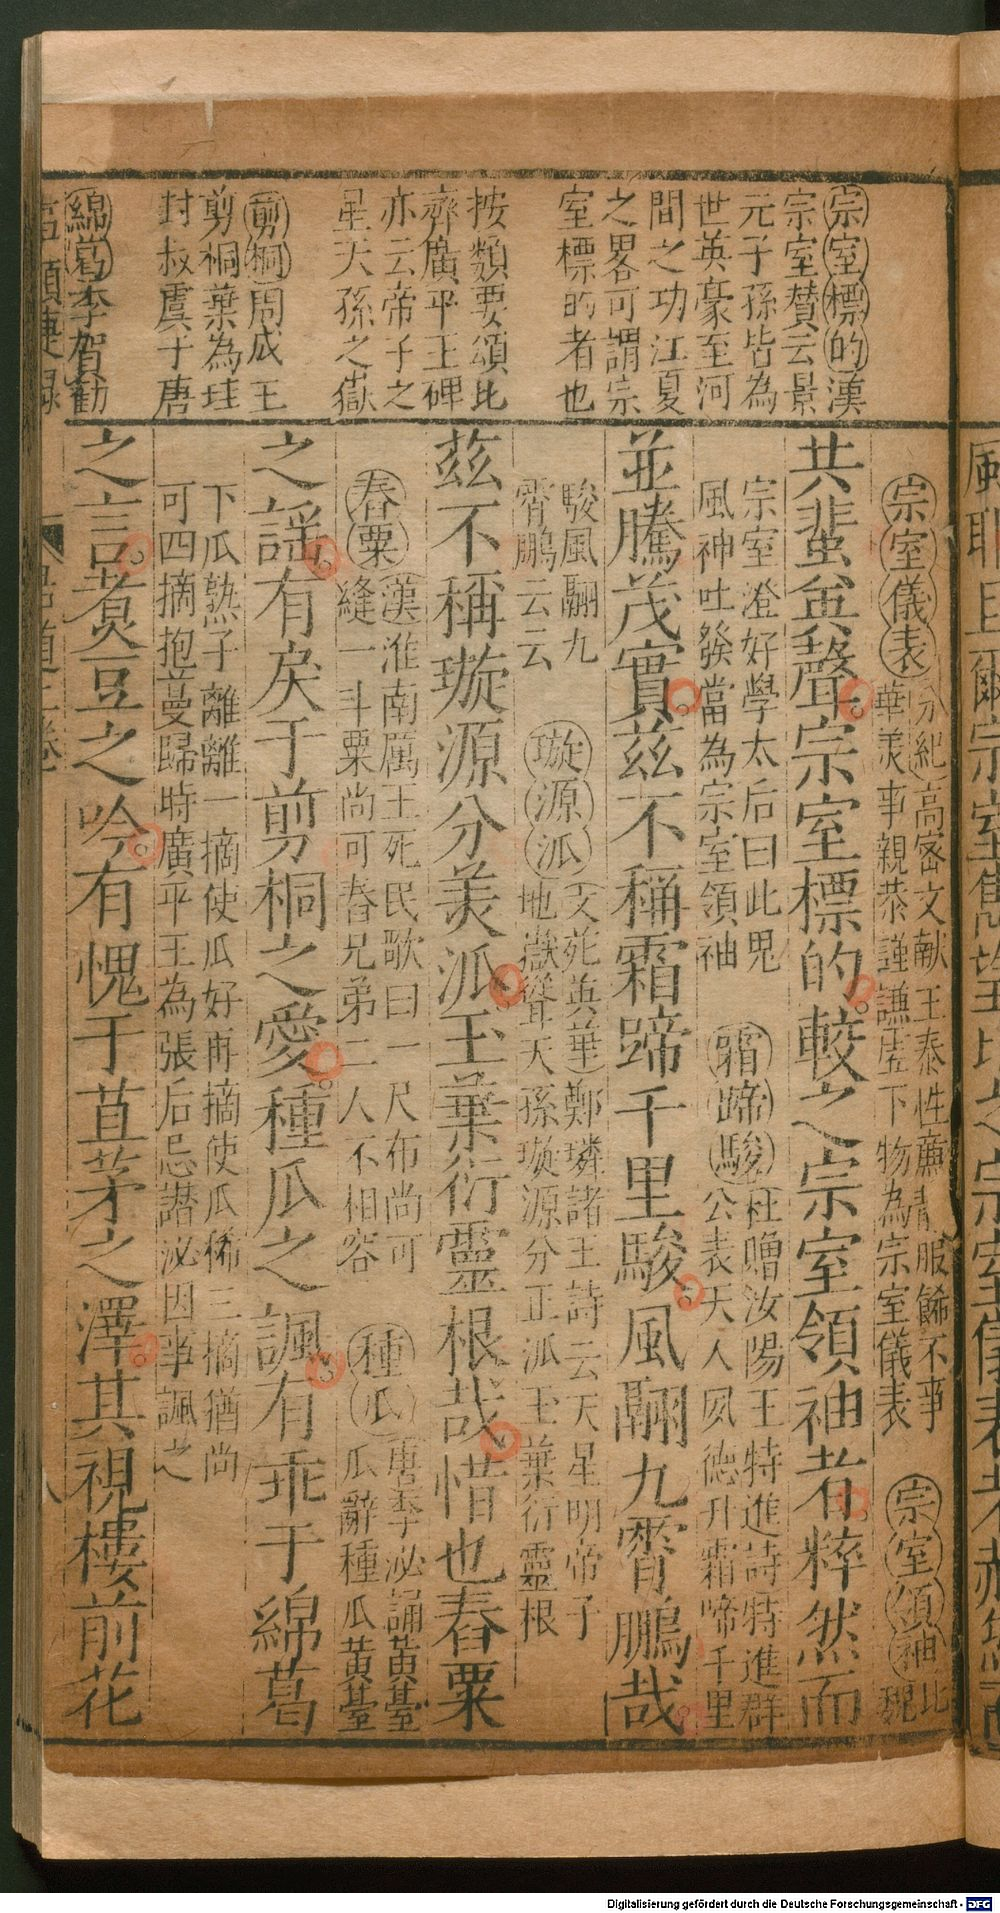 宗室標的漢
宗室贊云景
元子孫皆為
世英豪至河
間之功江夏
之畧可謂宗
室標的者也
按類要頌比
齊廣平王碑
亦云帝子之
星天孫之嶽
剪桐周成王
剪桐葉為珪
封叔虞于唐
綿葛李賀勸
宗室儀表分紀高密文献王泰性廉服餙不事
華羙事親恭謹謙下物為宗室儀表
宗室領袖北
魏
共蜚並馨宗室標的較之宗室領袖者粹然而
宗室澄好學太后曰此児
風神吐發當為宗室領袖
霜蹄駿杜贈汝陽王特進詩特進群
公表天人夙德升霜啼千里
並騰茂實茲不稱霜蹄千里駿風翮九霄鵬哉
駿風翮九
霄鵬云云
璇源派文苑英華鄭璘諸王詩云天星明帝子
地嶽聳天孫璇源分正派玉葉衍靈根
茲不稱璇源分美派玉葉衍靈根哉惜也舂粟
舂粟漢淮南厲王死民歌曰一尺布尚可
縫一斗粟尚可舂兄弟二人不相容
種瓜唐李泌誦黃䑓
瓜辭種瓜黃䑓
之謡有戾于剪桐之愛種瓜之諷有乖于綿葛
下瓜熟子離離一摘使瓜好再摘使瓜稀三摘猶尚
可四摘抱蔓歸時廣平王為張后忌譖泌因事諷之
之言煮豆之吟有愧于苴茅之澤其視樓前花
Digitalisierung gefördert durch die Deutsche Forschungsgemeinschaft - DFG